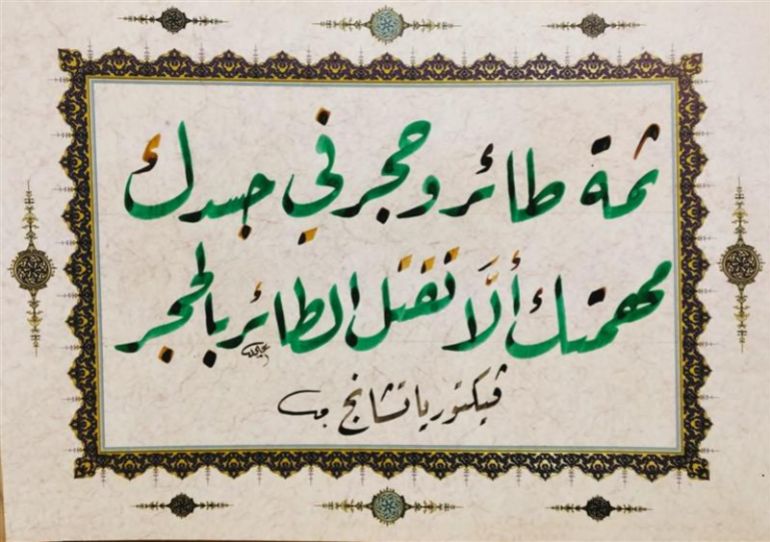 ثمة طائر وحجر في جسدك
مهمتك ألَّا تقتل الطائر بالحجر
ڤيكتوريا تشانج